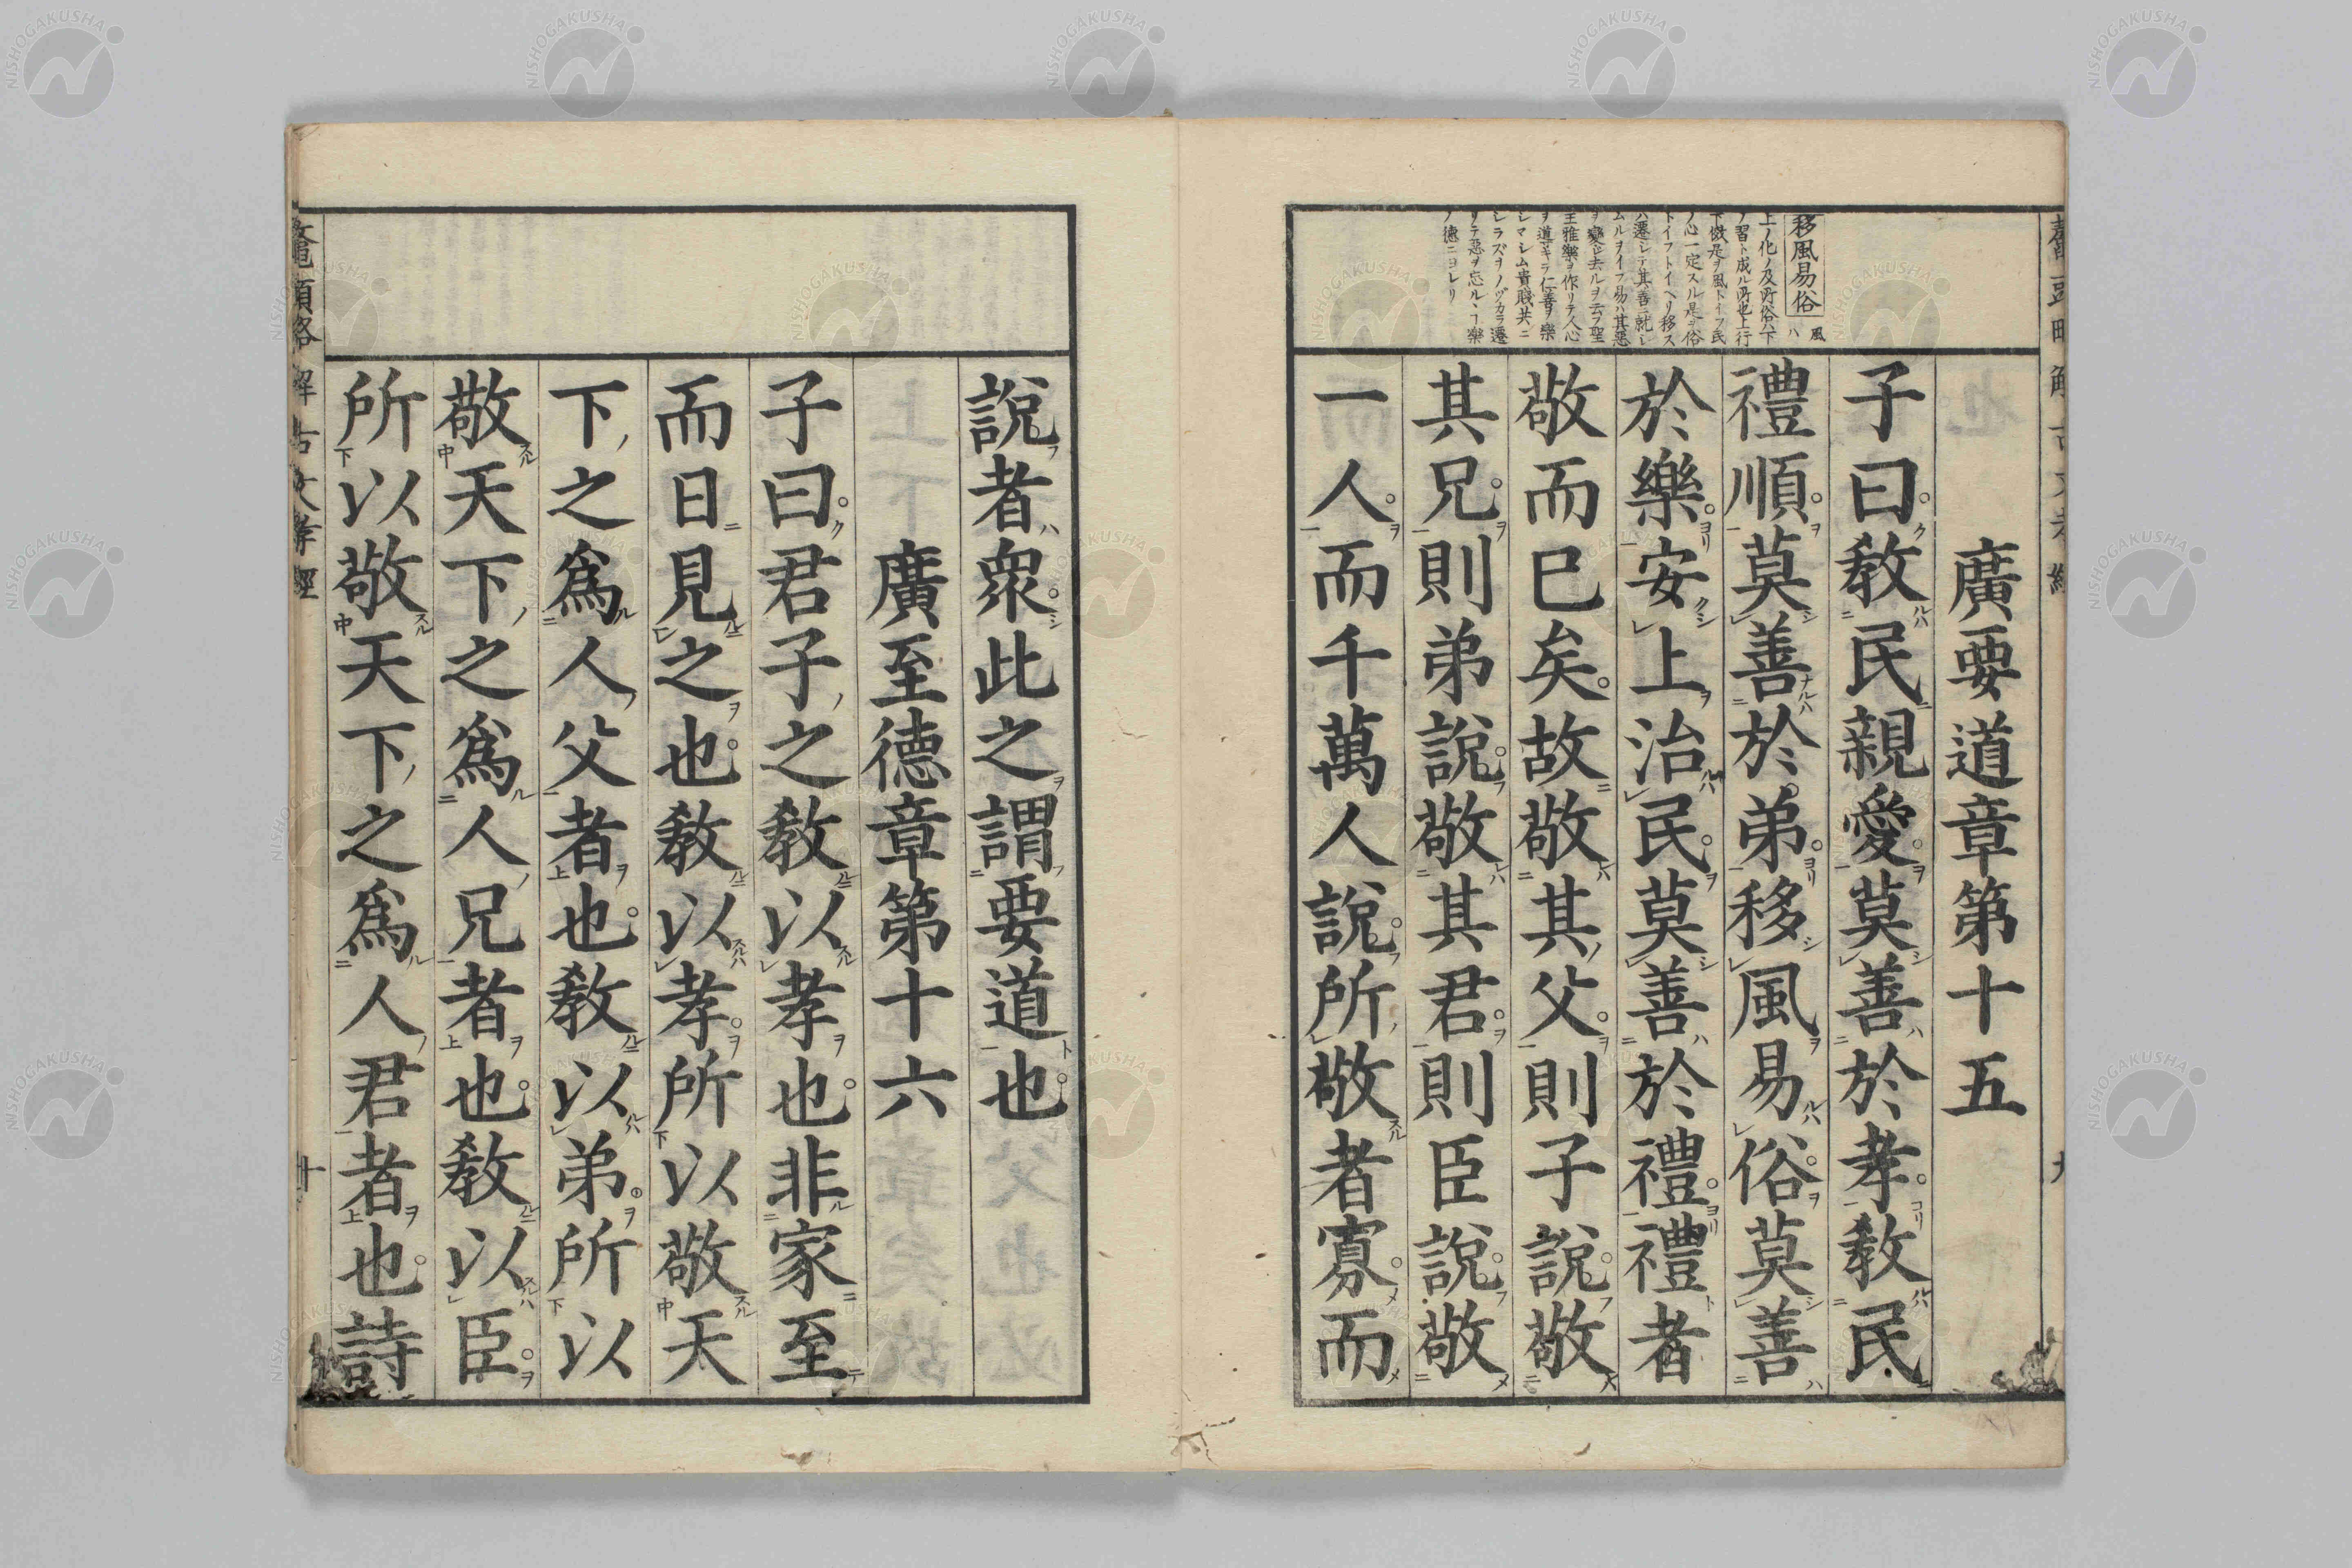 廣要道章第十五
子曰教民親愛莫善於孝教民
禮順莫善於弟移風易俗莫善
於樂安上治民莫善於禮禮者
敬而已矣故敬其父則子說敬
其兄則弟說敬其君則臣說敬
一人而千萬人說所敬者寡而
移風易俗 風ハ
上ノ化ノ及所俗ハ下
ノ習ト成ル所也上行
下傚是ヲ風トイフ民
ノ心一定スル是ヲ俗
トイフトイヘリ移ス
ハ遷シテ其善ニ就シ
ムルヲイフ易ハ其惡
ヲ變シ去ルヲ云フ聖
王雅樂ヲ作リテ人心
ヲ道キラ仁善ヲ樂
シマシム貴賤共ニ
シラズヲノヅカラ遷
リテ惡ヲ忘ルヽ樂
ノ德ニヨレリ
說者衆此之謂要道也
廣至德章第十六
子曰君子之教以孝也非家至
而日見之也教以孝所以敬天
下之爲人父者也教以弟所以
敬天下之爲人兄者也教以臣
所以敬天下之爲人君者也詩
鼇頭略解古文孝經
十
NISHOGAKUSHA